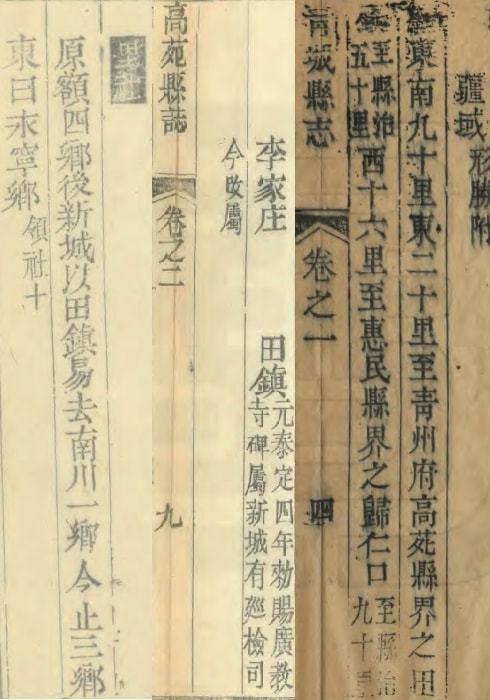 疆域形勝附
東南九十里東二十里至青州府高苑縣界之田
鎮至縣治五十里西十六里至惠民縣界之歸仁口至縣治九十里
青城縣志 卷之一 四
李家庄 田鎮元泰定四年勅賜廣教寺碑屬新城有廵檢司
今改屬
高苑縣誌 卷之二 九
里社
原額四鄉後新城以田鎮易去南川一鄉今止三鄉
東曰永寧鄉領社十